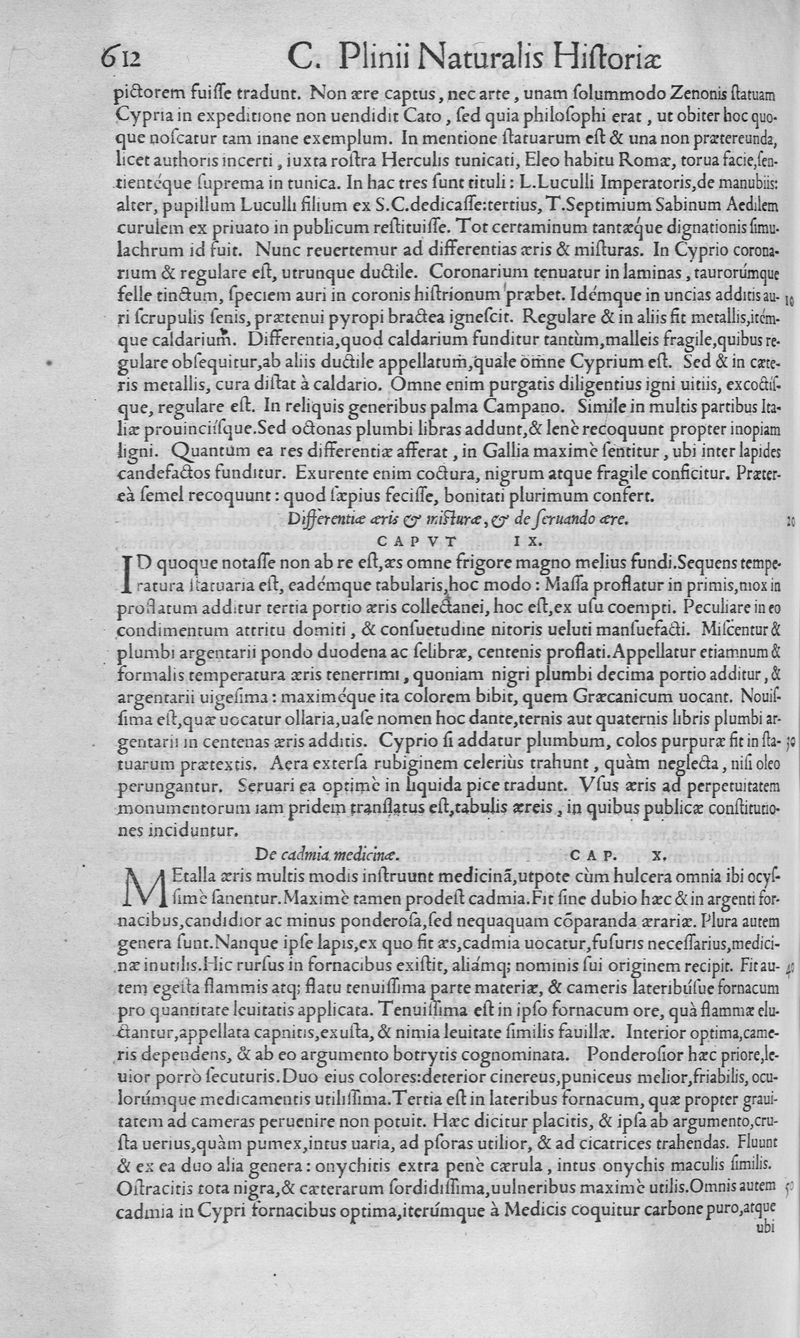 612 C. Plinii Naturalis Hiſtoriæ
pictorem fuiſſe tradunt. Non ære captus, nec arte, unam ſolummodo Zenonis ſtatuam
Cypria in expeditione non uendidit Cato, ſed quia philoſophi erat, ut obiter hoc quo-
que noſcatur tam inane exemplum. In mentione ſtatuarum eſt & una non prætereunda,
licet authoris incerti, iuxta roſtra Herculis tunicati, Eleo habitu Romæ, torua facie, ſen-
tientéque ſuprema in tunica. In hac tres ſunt tituli: L. Luculli Imperatoris, de manubiis:
alter, pupillum Luculli filium ex S.C. dedicaſſe: tertius, T. Septimium Sabinum Aedilem
curulem ex priuato in publicum reſtituiſſe. Tot certaminum tantæq́ue dignationis ſimu-
lachrum id fuit. Nunc reuertemur ad differentias æris & miſturas. In Cyprio corona-
rium & regulare eſt, utrunque ductile. Coronarium tenuatur in laminas, taurorúmque
felle tinctum, ſpeciem auri in coronis hiſtrionum præbet. Idémque in uncias additis au- 10
ri ſcrupulis ſenis, prætenui pyropi bractea igneſcit. Regulare & in aliis fit metallis, itém-
que caldarium. Differentia, quod caldarium funditur tantùm, malleis fragile, quibus re-
gulare obſequitur, ab aliis ductile appellatum, quale omne Cyprium eſt. Sed & in cæte-
ris metallis, cura diſtat à caldario. Omne enim purgatis diligentius igni uitiis, excoctiſ-
que, regulare eſt. In reliquis generibus palma Campano. Simile in multis partibus Ita-
liæ prouinciíſque. Sed octonas plumbi libras addunt, & lenè recoquunt propter inopiam
ligni. Quantum ea res differentiæ afferat, in Gallia maximè ſentitur, ubi inter lapides
candefactos funditur. Exurente enim coctura, nigrum atque fragile conficitur. Præter-
eà ſemel recoquunt: quod ſæpius feciſſe, bonitati plurimum confert.
Differentiæ æris & miſturæ, & de ſeruando ære. 20
CAPVT IX.
ID quoque notaſſe non ab re eſt, æs omne frigore magno melius fundi. Sequens tempe-
ratura ſtatuaria eſt, eadémque tabularis, hoc modo: Maſſa proflatur in primis, mox in
proflatum additur tertia portio æris collectanei, hoc eſt, ex uſu coempti. Peculiare in eo
condimentum attritu domiti, & conſuetudine nitoris ueluti manſuefacti. Miſcentur &
plumbi argentarii pondo duodena ac ſelibræ, centenis proflati. Appellatur etiamnum &
formalis temperatura æris tenerrimi, quoniam nigri plumbi decima portio additur, &
argentarii uigeſima: maximéque ita colorem bibit, quem Græcanicum uocant. Nouiſ-
ſima eſt, quæ uocatur ollaria, uaſe nomen hoc dante, ternis aut quaternis libris plumbi ar-
gentarii in centenas æris additis. Cyprio ſi addatur plumbum, colos purpuræ fit in ſta- 30
tuarum prætextis. Aera exterſa rubiginem celeriùs trahunt, quàm neglecta, niſi oleo
perungantur. Seruari ea optimè in liquida pice tradunt. Vſus æris ad perpetuitatem
monumentorum iam pridem tranſlatus eſt, tabulis æreis, in quibus publicæ conſtitutio-
nes inciduntur.
De cadmia medicinæ. CAP. X.
MEtalla æris multis modis inſtruunt medicinã, utpote cùm hulcera omnia ibi ocyſ-
ſimè ſanentur. Maximè tamen prodeſt cadmia. Fit ſine dubio hæc & in argenti for-
nacibus, candidior ac minus ponderoſa, ſed nequaquam cõparanda ærariæ. Plura autem
genera ſunt. Nanque ipſe lapis, ex quo fit æs, cadmia uocatur, fuſuris neceſſarius, medici-
næ inutilis. Hic rurſus in fornacibus exiſtit, aliámq; nominis ſui originem recipit. Fit au- 40
tem egeſta flammis atq; flatu tenuiſſima parte materiæ, & cameris lateribúſue fornacum
pro quantitate leuitatis applicata. Tenuiſſima eſt in ipſo fornacum ore, quà flammæ elu-
ctantur, appellata capnitis, exuſta, & nimia leuitate ſimilis fauillæ. Interior optima, came-
ris dependens, & ab eo argumento botrytis cognominata. Ponderoſior hæc priore, le-
uior porrò ſecuturis. Duo eius colores: deterior cinereus, puniceus melior, friabilis, ocu-
lorúmque medicamentis utiliſſima. Tertia eſt in lateribus fornacum, quæ propter graui-
tatem ad cameras peruenire non potuit. Hæc dicitur placitis, & ipſa ab argumento, cru-
ſta uerius, quàm pumex, intus uaria, ad pſoras utilior, & ad cicatrices trahendas. Fluunt
& ex ea duo alia genera: onychitis extra penè cærula, intus onychis maculis ſimilis.
Oſtracitis tota nigra, & cæterarum ſordidiſſima, uulneribus maximè utilis. Omnis autem 50
cadmia in Cypri fornacibus optima, iterúmque à Medicis coquitur carbone puro, atque
ubi